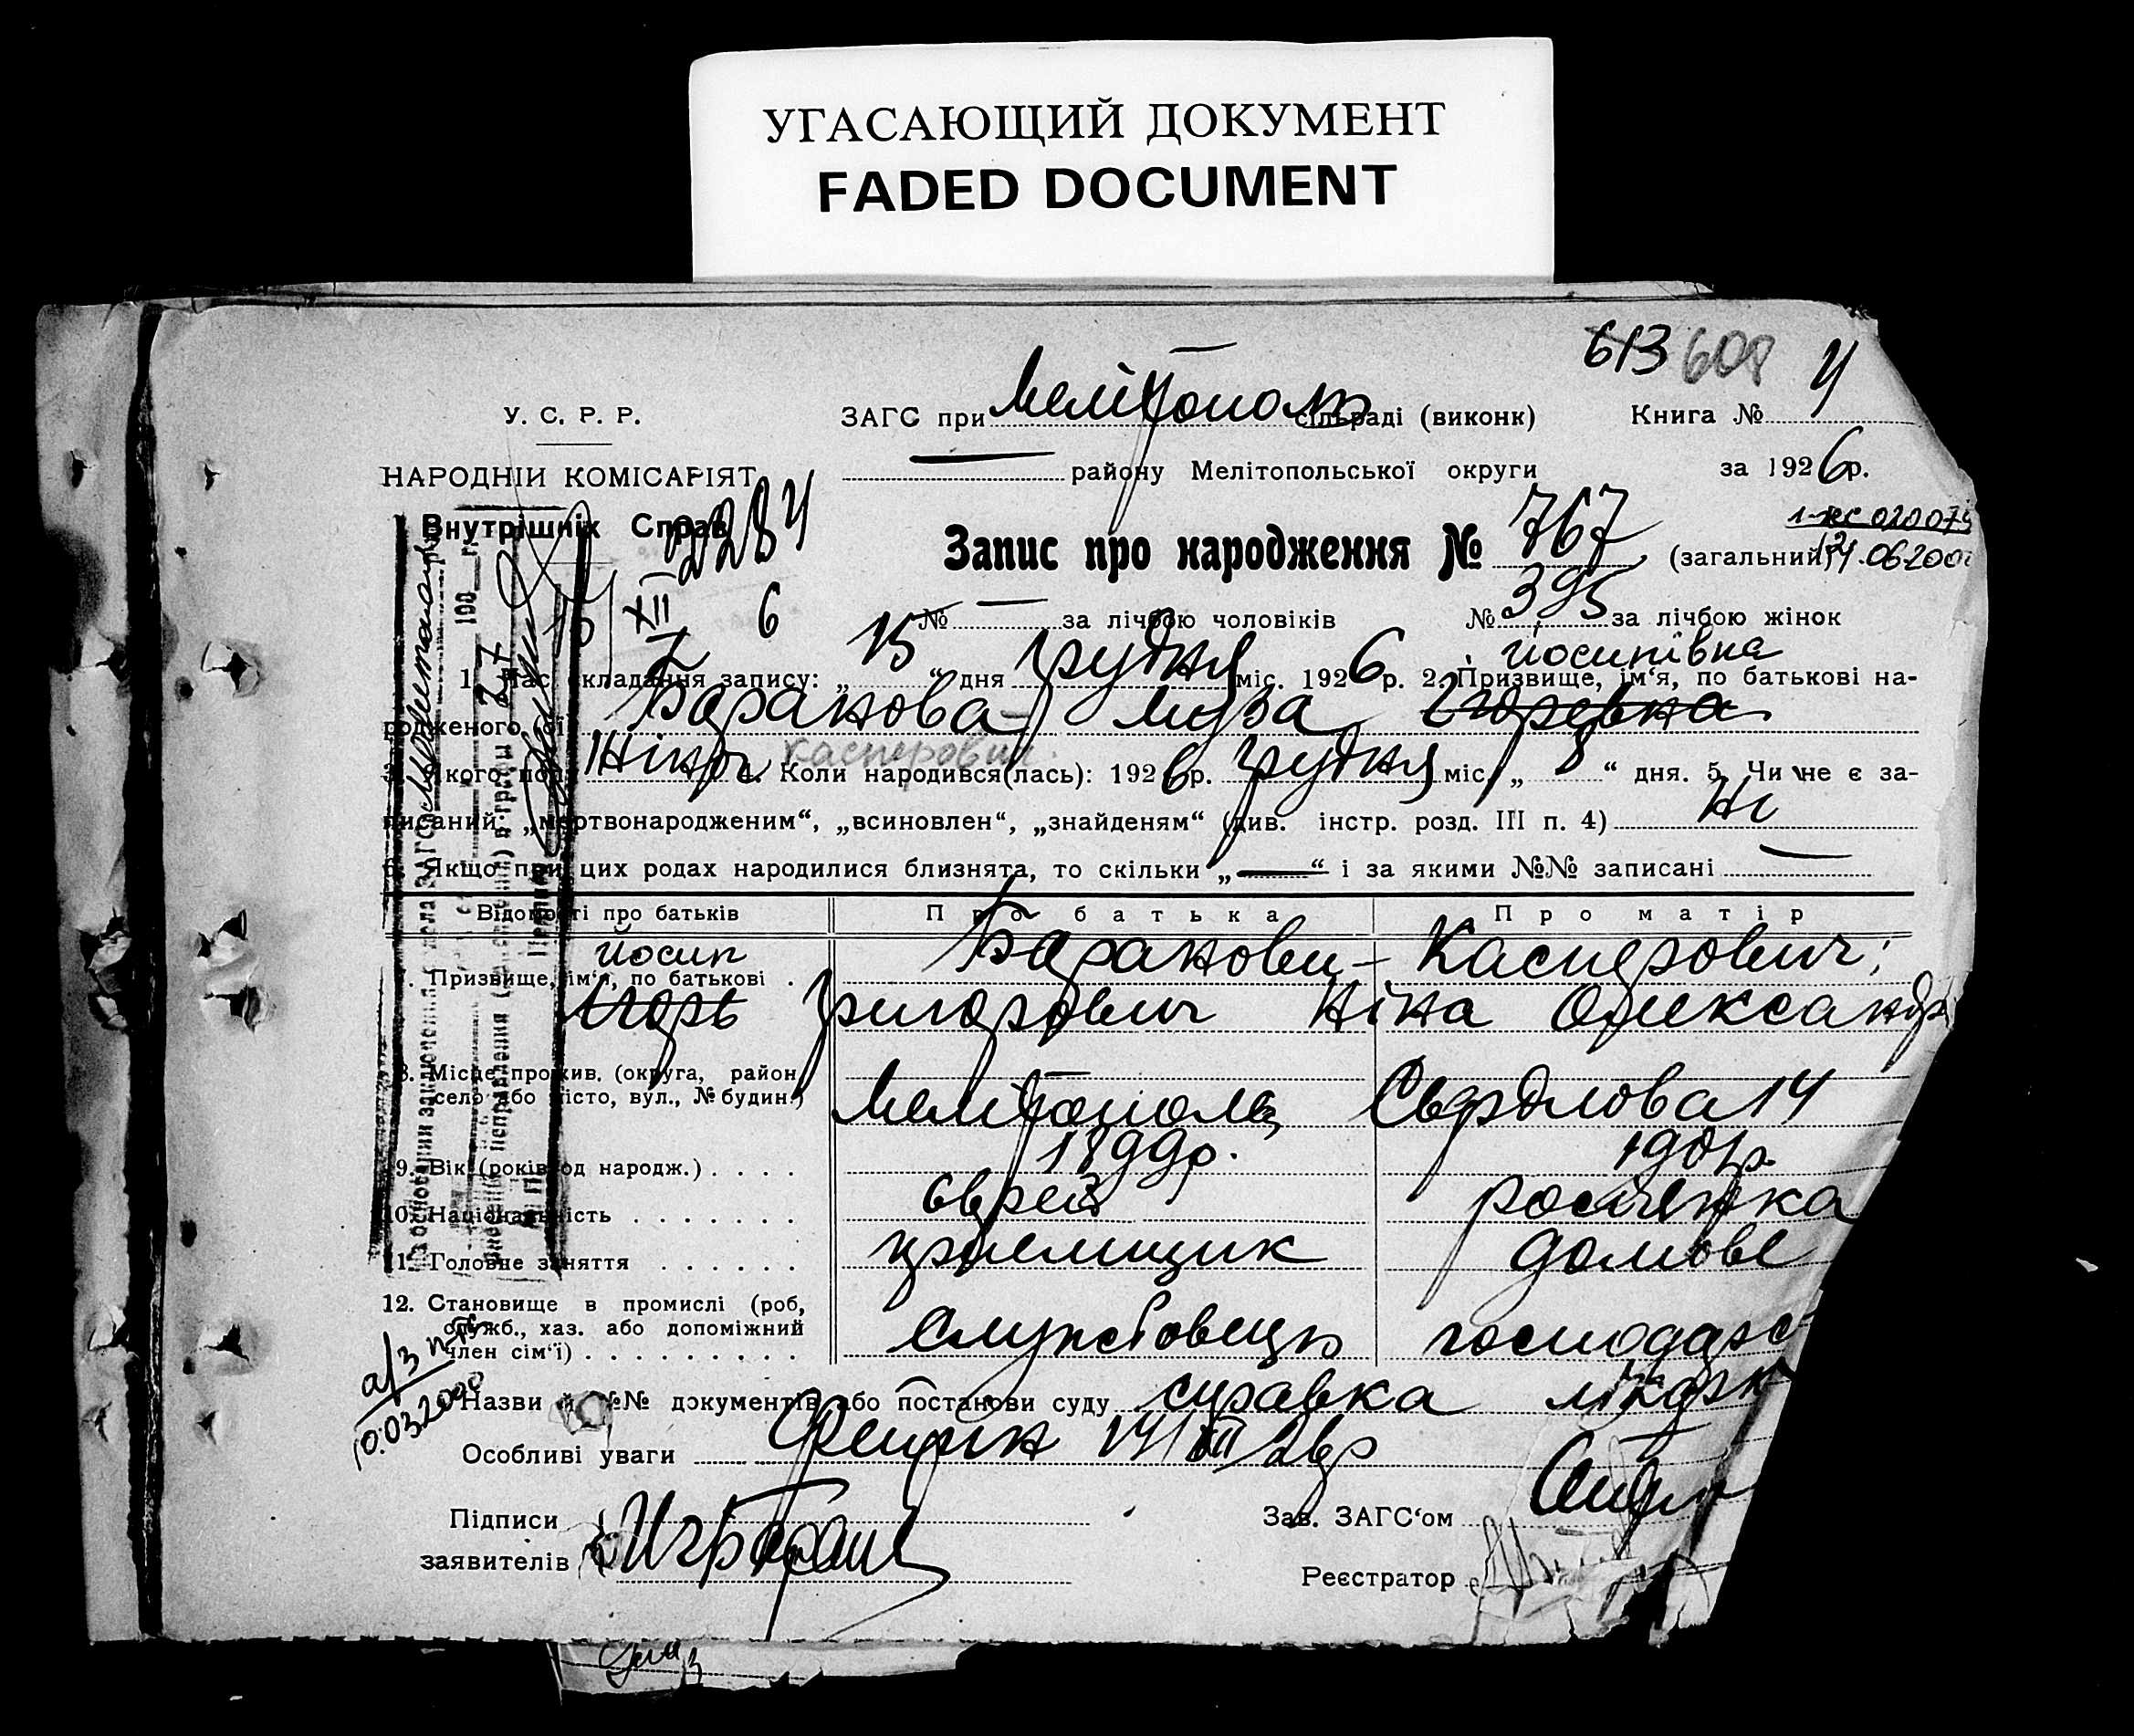 УГАСАЮЩИЙ ДОКУМЕНТ
FADED DOCUMENT
613 608
У. С. Р. Р.
ЗАГС при Мелітополь сільраді (виконк)
Книга № 4
НАРОДНІЙ КОМІСАРІЯТ
району Мелітопольської округи
за 1926 р.
Внутрішніх Справ
2284
Запис про народження № 767 (загальний)
14.06.200
№ — за лічбою чоловіків
№ 395 за лічбою жінок
15/XII 6
Йосипівна
1. Час складання запису: „15“ дня грудня міс. 1926 р. 2. Призвище, ім‘я, по батькові на-
родженого (ої) Баранова- Муза Ігоревна
Касперович
3. Якого полу Жіноч. 4. Коли народився(лась): 1926 р. грудня міс. „8“ дня. 5. Чи не є за-
писаний „мертвонародженим“, „всиновлен“, „знайденям“ (див. інстр. розд. III п. 4) Ні
6. Якщо при цих родах народилися близнята, то скільки „—“ і за якими №№ записані —
Відомості про батьків
Про батька
Про матір
Йосип
7. Призвище, ім‘я, по батькові .
Барановщ- Касперович;
Игорь Григорович Ніна Олександр
8. Місце прожив. (округа, район,
село або місто, вул., № будин.)
Мелітополь Свердлова 14
9. Вік (років од народж.) . . . .
1899р. 1901р.
10. Національність . . . . . . .
еврей росіянка
11. Головне заняття . . . . . .
приемщик домове
12. Становище в промислі (роб,
служб., хаз. або допоміжний
член сім‘ї) . . . . . . . . .
Службовець господарс
Назви й №№ документів або постанови суду справка лікарн
Особливі уваги
14/XII 26р
Підписи
заявителів
Зав. ЗАГС‘ом
Реєстратор
а/з
10.03.2000